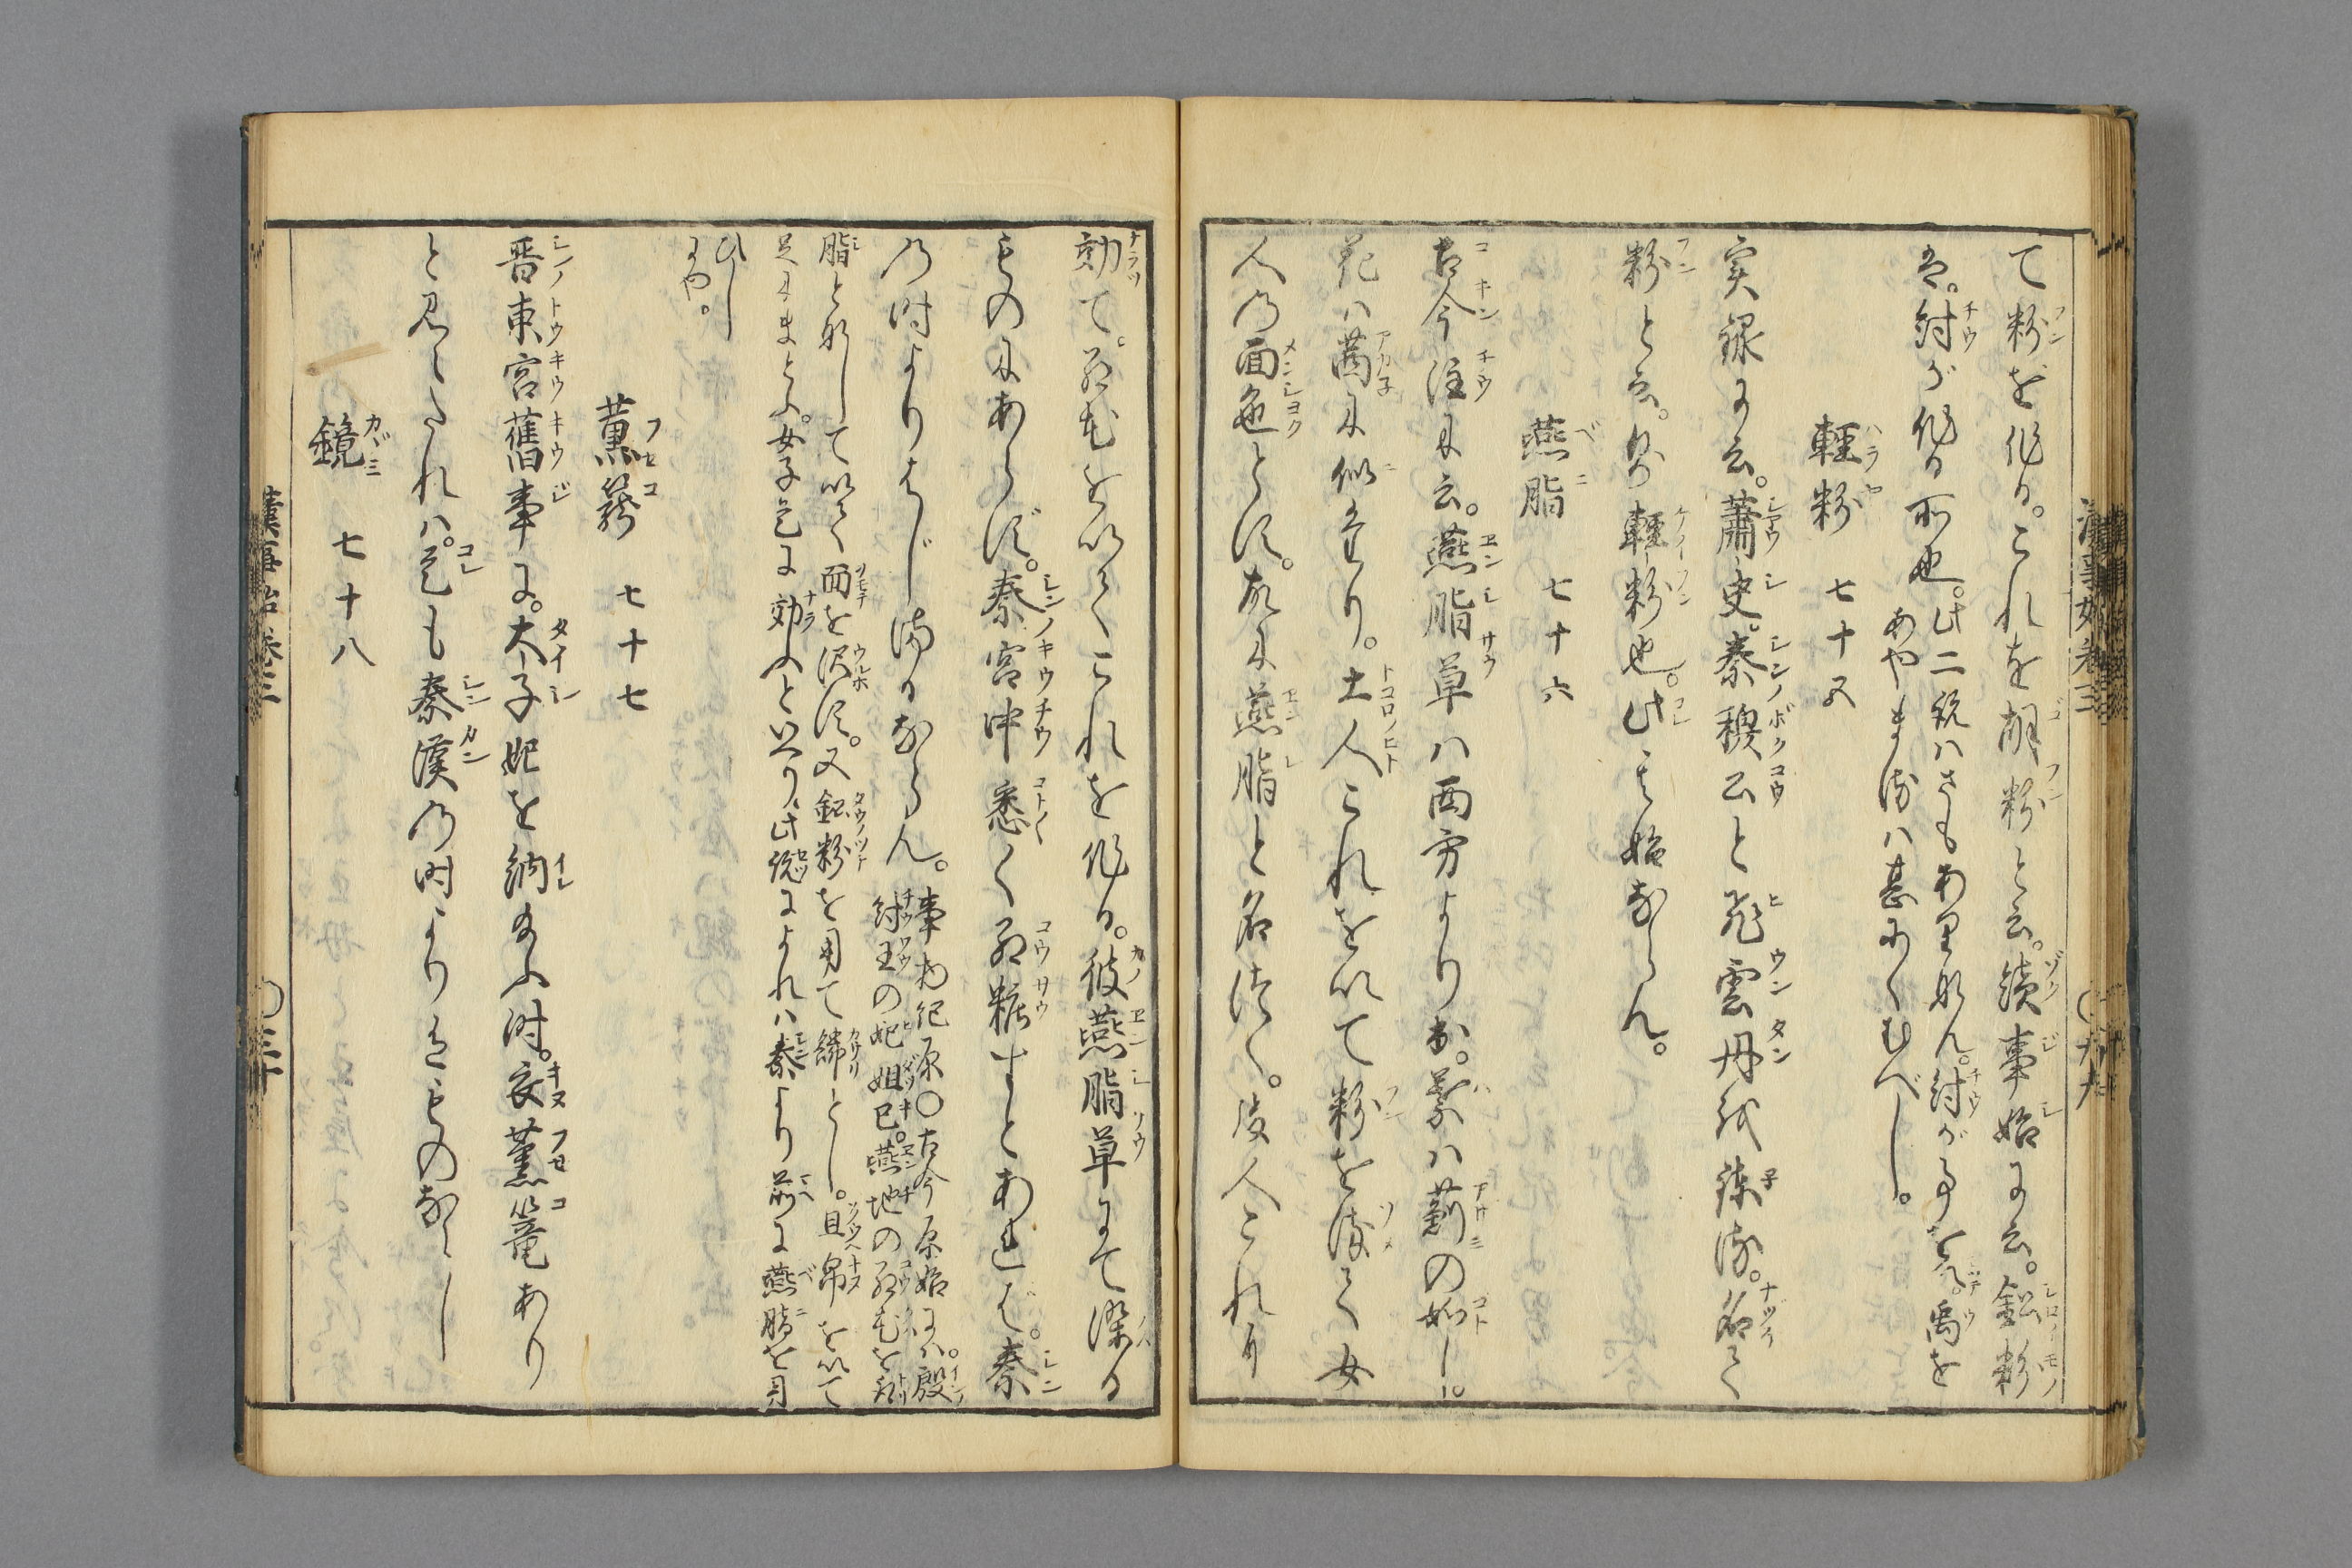 て粉を作る。これを胡粉と云。續事始に云。鉛粉
は。紂が作る所也。此二説ハさもあるらん。紂がことを禹を
あやまるハ甚にくむべし。
輕粉 七十五
実録に云。蕭史。秦穆公と飛雲丹を煉る。名て
粉と云。即輕粉也。此其始ならん。
燕脂 七十六
古今注に云。燕脂草ハ西方より出。葉ハ薊の如し。
花ハ茜に似たり。土人これを以て粉を染て女
人の面色とす。故に燕脂と名づく。後人これに
効て。紅花を以てこれを作る。彼燕脂草にて染る
ものにあらず。秦宮中悉く紅粧すとあれば。秦
の時よりはじまるならん。事物紀原〇古今原始にハ。殷
紂王の妃妲已。燕地の紅花を取
脂となして以て面を沢す。又鉛粉を用て餙とし。且帛を以て
足をまとふ。女子是に効ふと以へり。此説によれハ秦より前に燕脂を用
ひし
にや。
薫篝 七十七
晋東宮舊事に。太子妃を納給ふ時。衣薫篭あり
と見へたれハ。是も秦漢の時よりはものなるべし
鏡 七十八
漢事始巻三
〇三十